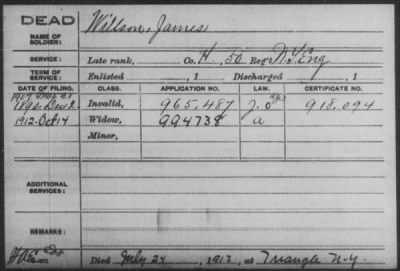 DEAD
NAME OF SOLDIER: Willson, James
SERVICE: Late rank, Co. H, 50 Reg't N.Y. Eng
TERM OF SERVICE: Enlisted , 1 Discharged , 1
DATE OF FILING. CLASS. APPLICATION NO. LAW. CERTIFICATE NO.
1907
1890-Dec 2 Invalid, 965.487 918.094
1912-Oct 14 Widow, 994738 a
Minor,
ADDITIONAL SERVICES:
REMARKS:
Died July 24, 1912, at Triangle N.Y.